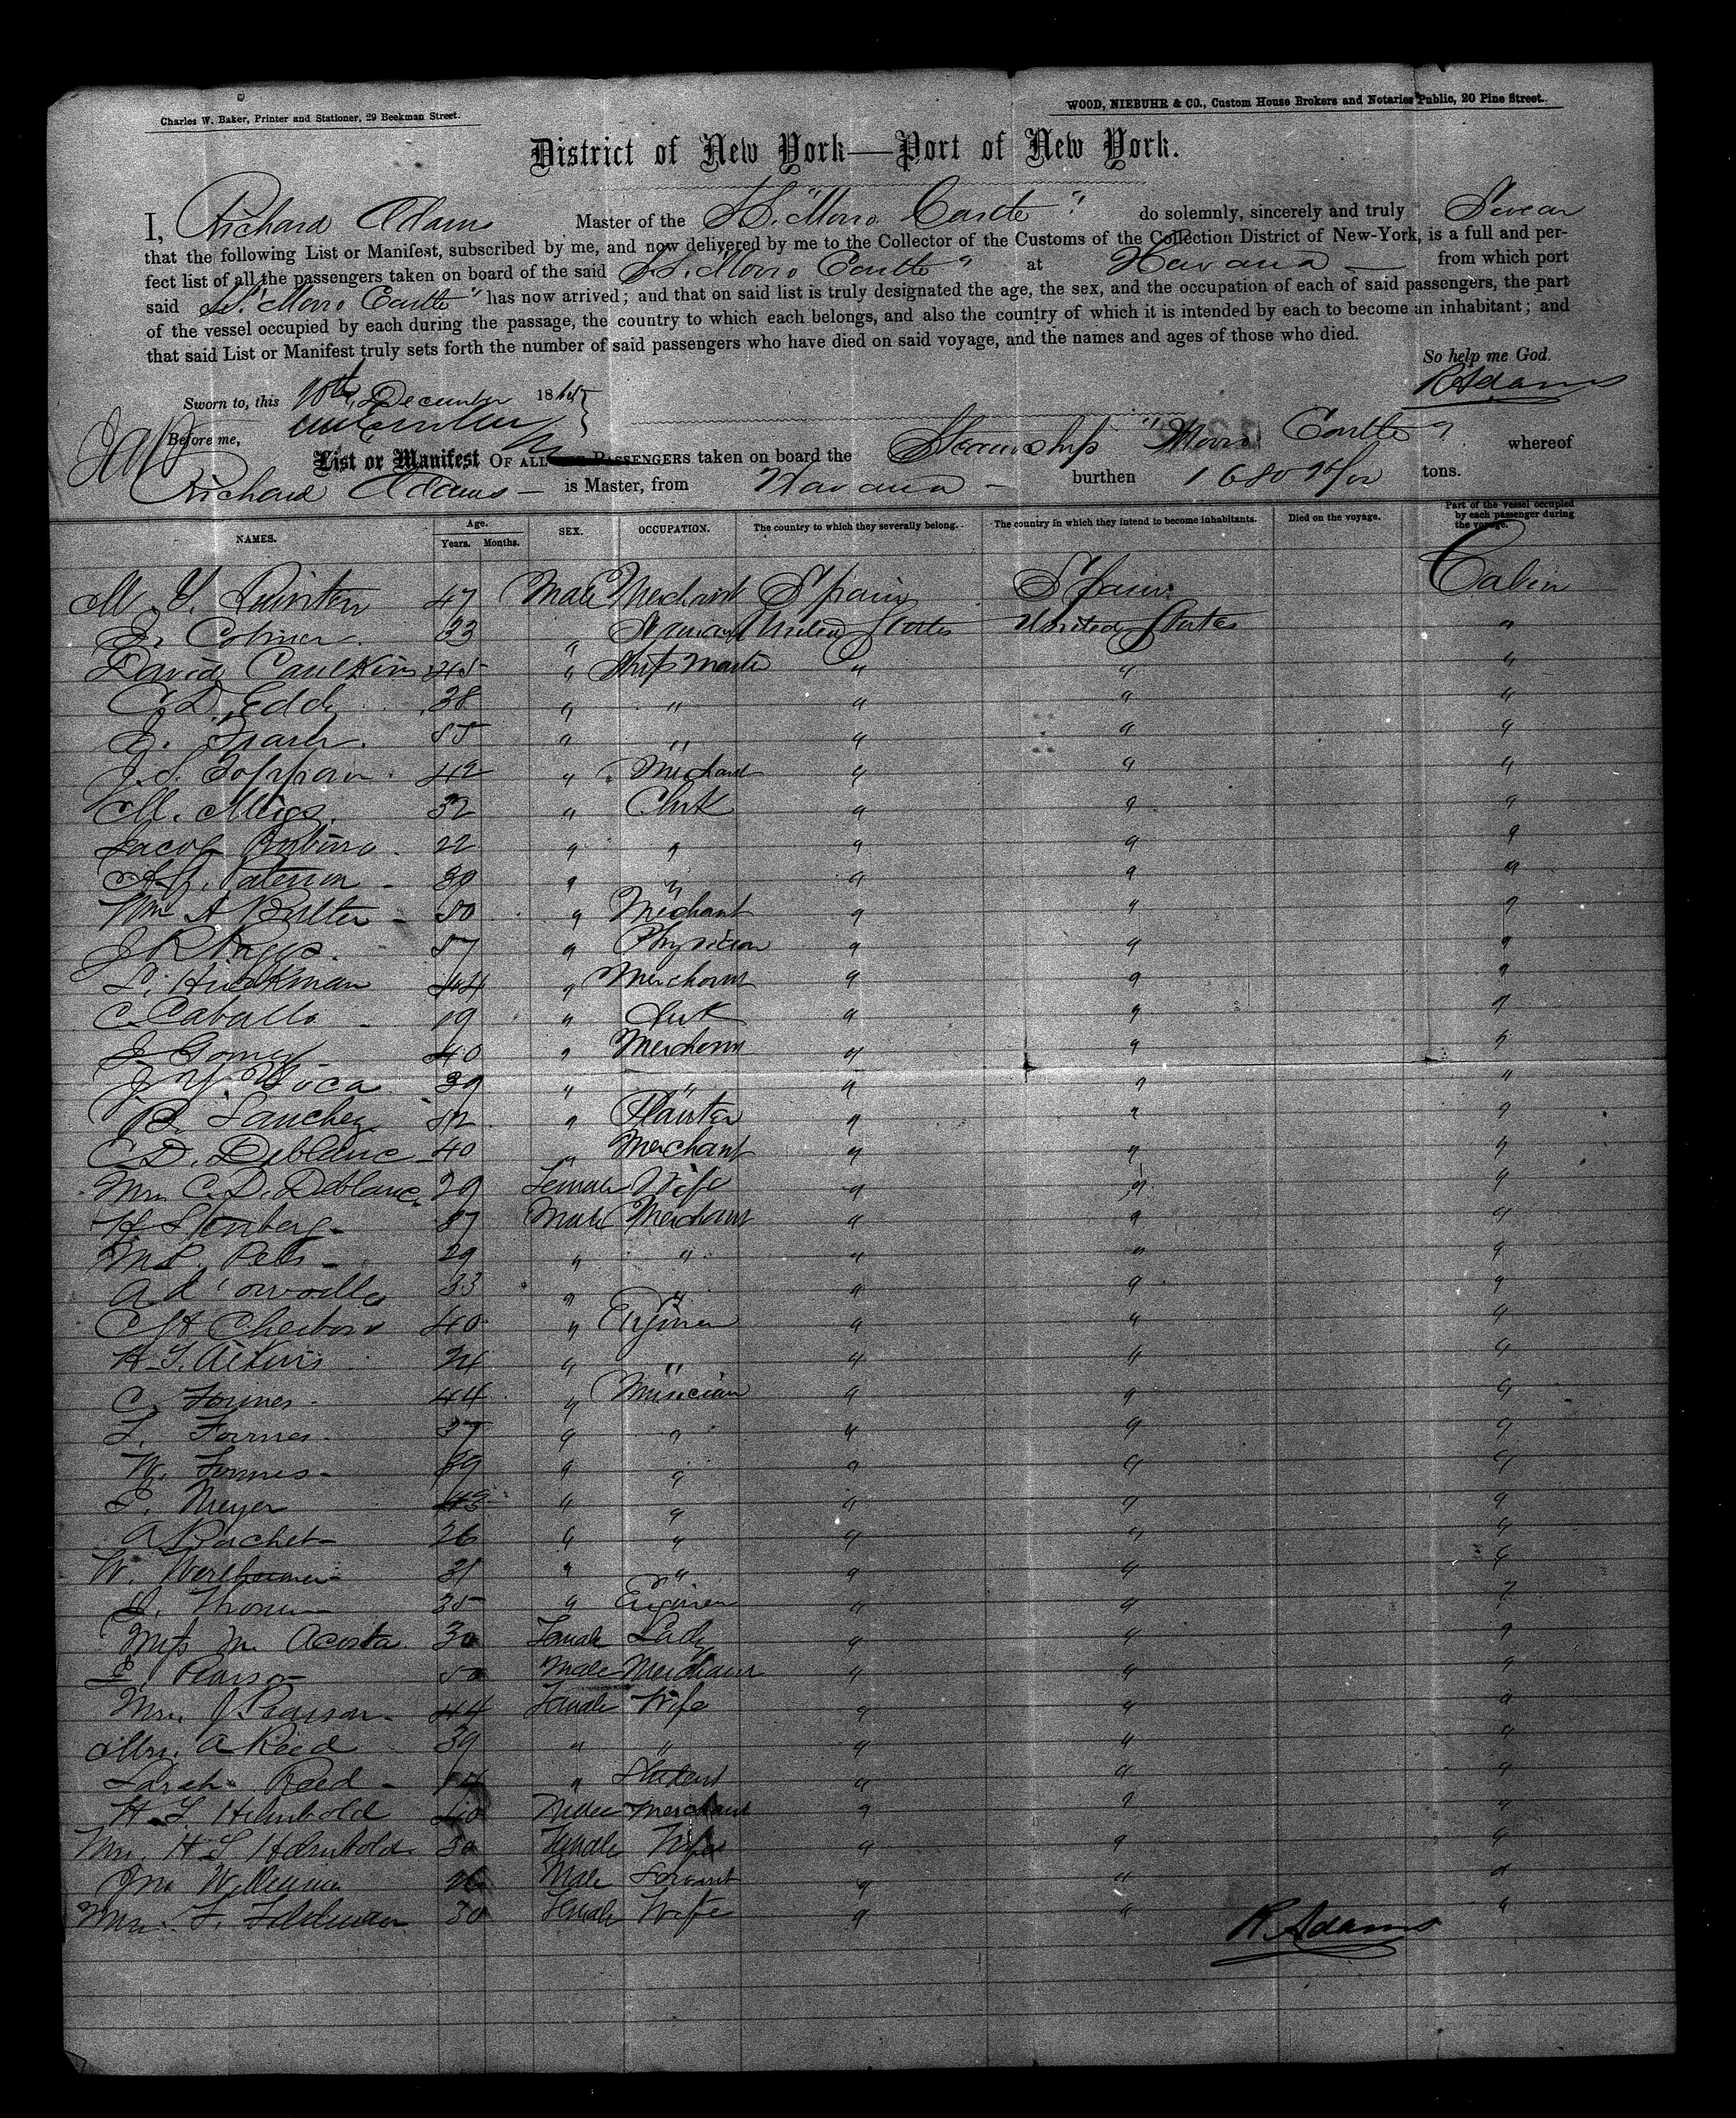 Charles W. Baker, Printer and Stationer, 29 Beekman Street.
WOOD, NIEBUHR & CO., Custom House Brokers and Notaries Public, 20 Pine Street.
District of New York—Port of New York.
I, Richard Adams Master of the SS. "Morro Castle" do solemnly, sincerely and truly Swear
that the following List or Manifest, subscribed by me, and now delivered by me to the Collector of the Customs of the Collection District of New-York, is a full and per-
fect list of all the passengers taken on board of the said SS. "Morro Castle" at Havana from which port
said SS. "Morro Castle" has now arrived; and that on said list is truly designated the age, the sex, and the occupation of each of said passengers, the part
of the vessel occupied by each during the passage, the country to which each belongs, and also the country of which it is intended by each to become an inhabitant; and
that said List or Manifest truly sets forth the number of said passengers who have died on said voyage, and the names and ages of those who died.
So help me God.
Sworn to, this December 1865
R Adams
Before me,
List or Manifest OF ALL PASSENGERS taken on board the Steamship "Morro Castle" whereof
Richard Adams is Master, from Havana burthen 1680 tons.
NAMES. Age. Years. Months. SEX. OCCUPATION. The country to which they severally belong. The country in which they intend to become inhabitants. Died on the voyage. Part of the vessel occupied by each passenger during the voyage.
M. Y. 47 Male Merchant Spain Spain Cabin
33 " United States United States "
David Caulkins 45 " Ship Master " " "
C. D. Eddy 38 " " " " "
J. " " " " "
J. S. Toppan 42 " Merchant " " "
M. Meigs 32 " Clerk " " "
Jacob 22 " " " " "
Paterson 39 " " " " "
Wm A Butler 50 " Merchant " " "
J R Riggs 57 " Physician " " "
Hickman 44 " Merchant " " "
C. Caballo 19 " Clerk " " "
J. Gomez 40 " Merchant " " "
J. Y. 39 " " " " "
B. Sanchez 52 " Planter " " "
C. D. Deblanc 40 " Merchant " " "
Mrs. C. D. Deblanc 29 Female Wife " " "
H Stenberg 37 Male Merchant " " "
29 " " " " "
33 " " " " "
C H 40 " Engineer " " "
H. Aikins 24 " " " " "
C. Formes 44 " Musician " " "
Formes 37 " " " " "
W. Formes 39 " " " " "
Meyer " " " " "
A 26 " " " " "
W. 31 " " " " "
35 " Engineer " " "
Miss M. Acosta 30 Female Lady " " "
Pearson 50 Male Merchant " " "
Mrs. J Pearson 44 Female Wife " " "
Mrs. A Reed 39 " " " " "
Sarah Reed 14 " Student " " "
H. T. Helmbold 40 Male Merchant " " "
Mrs. H T Helmbold 30 Female Wife " " "
Jno Williams 26 Male Servant " " "
Mrs. F. 30 Female Wife " " "
R. Adams